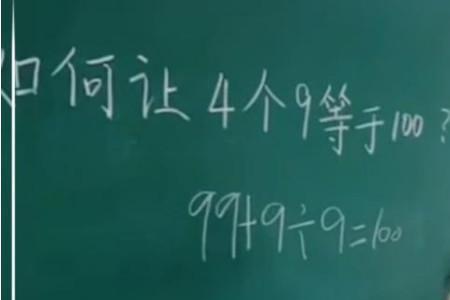 如何让4个9等于100?
99+9÷9=100